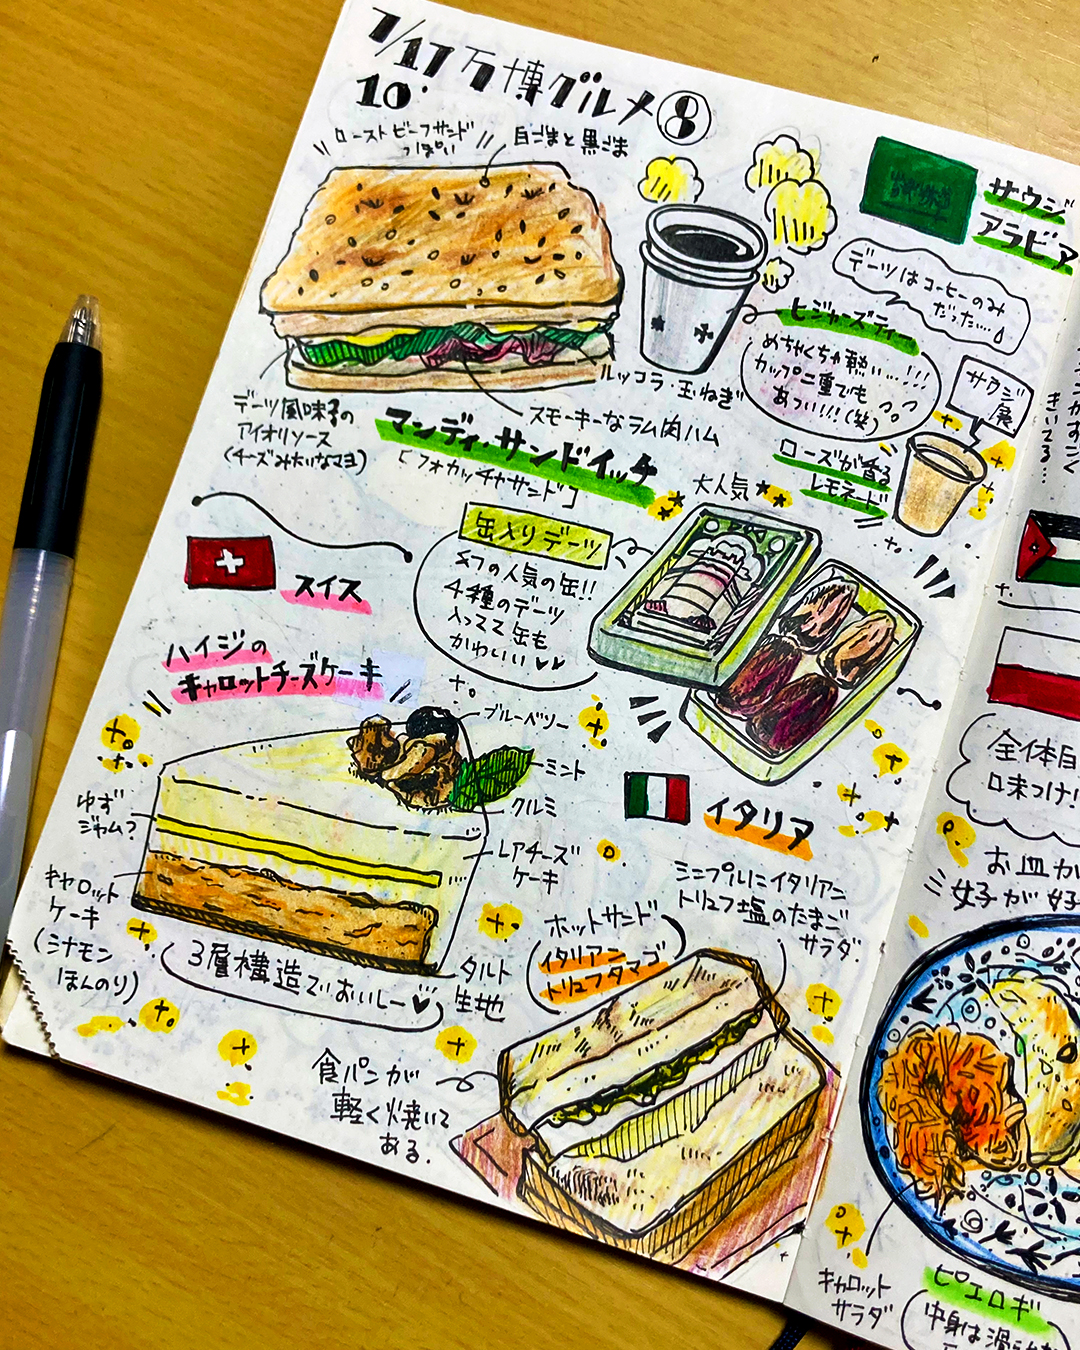 7/17 万博グルメ⑧
10.
ローストビーフサンド
っぽい
白ごまと黒ごま
サウジ
アラビア
デーツはコーヒーのみ
だった....
ヒジャーズティー
めちゃくちゃ熱い...!!!
カップ二重でも
あつい!!!(笑)
サウジ
展
ローズが香る
レモネード
ルッコラ・玉ねぎ
スモーキーなラム肉ハム
デーツ風味の
アイオリソース
(チーズみたいなマヨ)
マンディ・サンドイッチ
「フォカッチャサンド」
大人気
缶入りデーツ
の人気の缶!!
4種のデーツ
入ってて缶も
かわいい♥♥
スイス
ハイジの
キャロットチーズケーキ
ブルーベリー
ミント
クルミ
レアチーズ
ケーキ
ゆず
ジャム?
キャロット
ケーキ
(シナモン
ほんのり)
タルト
生地
3層構造でおいしー♥
イタリア
ミニプルにイタリアン
トリュフ塩のたまご
サラダ.
ホットサンド
イタリアン
トリュフタマゴ
食パンが
軽く焼いて
ある.
きいてる...
全体
味つけ!
お皿が
女子が好
キャロット
サラダ
ピエロギ
中身は